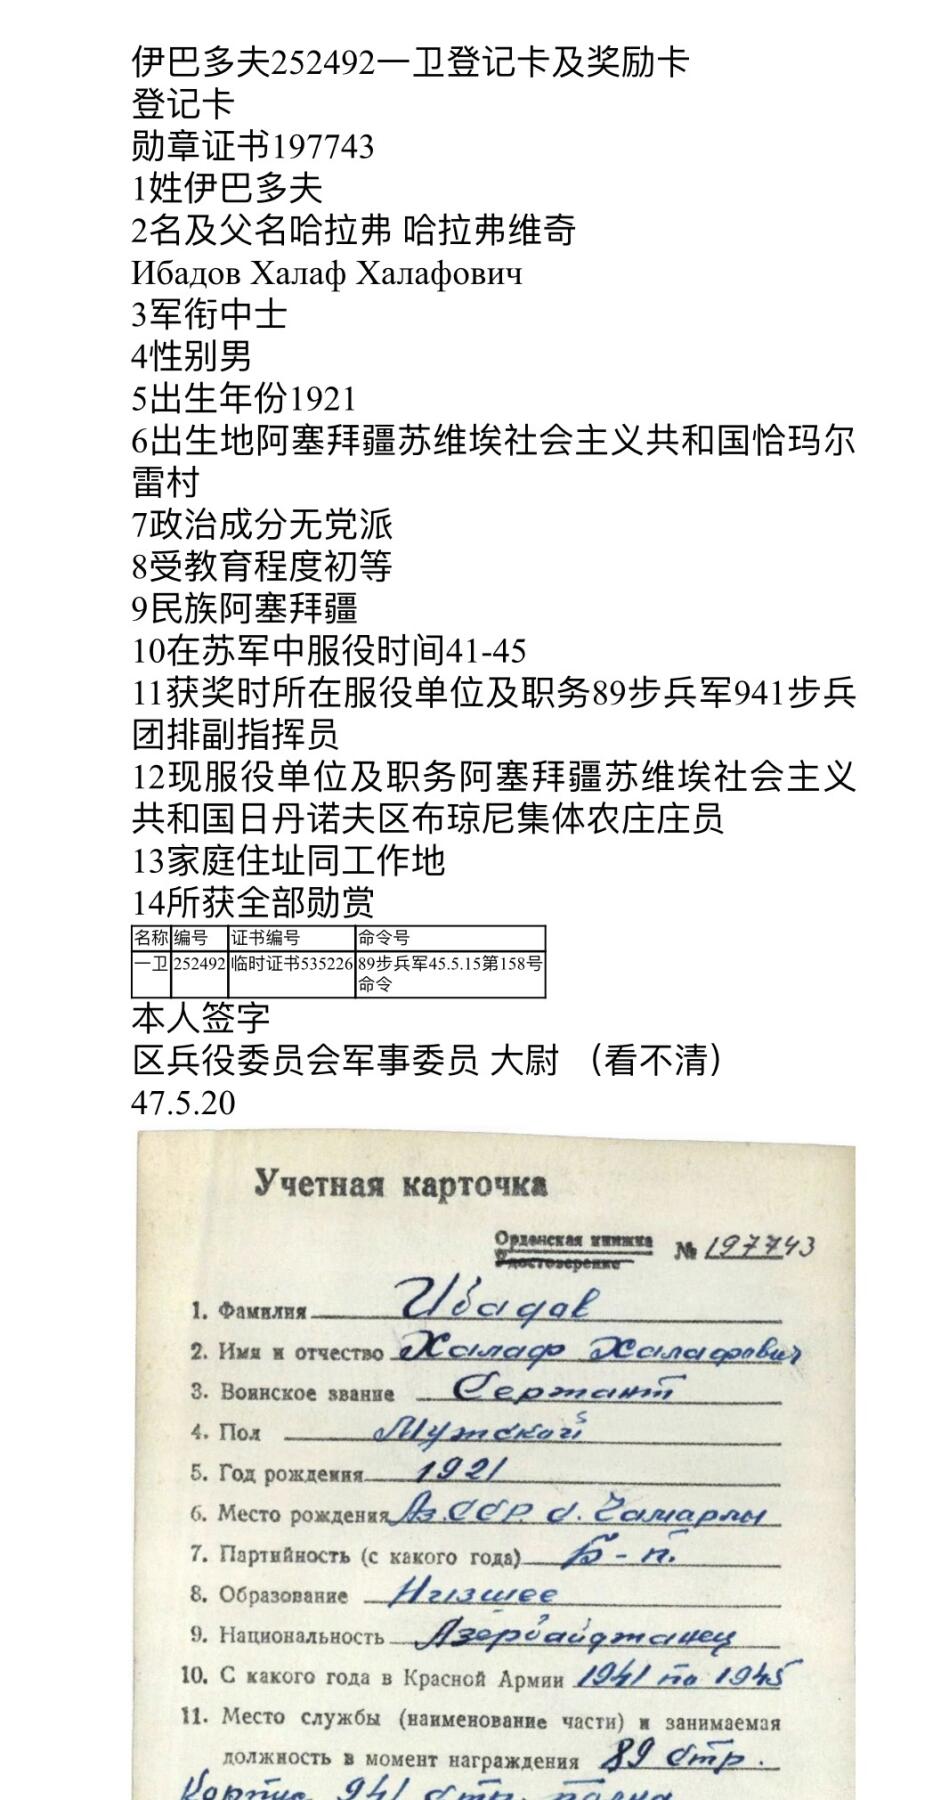 伊巴多夫252492一卫登记卡及奖励卡
登记卡
勋章证书197743
1姓伊巴多夫
2名及父名哈拉弗 哈拉弗维奇
Ибадов Халаф Халафович
3军衔中士
4性别男
5出生年份1921
6出生地阿塞拜疆苏维埃社会主义共和国恰玛尔
雷村
7政治成分无党派
8受教育程度初等
9民族阿塞拜疆
10在苏军中服役时间41-45
11获奖时所在服役单位及职务89步兵军941步兵
团排副指挥员
12现服役单位及职务阿塞拜疆苏维埃社会主义
共和国日丹诺夫区布琼尼集体农庄庄员
13家庭住址同工作地
14所获全部勋赏
名称 编号 证书编号 命令号
一卫 252492 临时证书535226 89步兵军45.5.15第158号
命令
本人签字
区兵役委员会军事委员 大尉 （看不清）
47.5.20
Учетная карточка
Орденская книжка № 197743
Удостоверение
1. Фамилия Ибадов
2. Имя и отчество Халаф Халафович
3. Воинское звание Сержант
4. Пол Мужской
5. Год рождения 1921
6. Место рождения Аз.ССР. с. Чамарлы
7. Партийность (с какого года) Б-п.
8. Образование Низшее
9. Национальность Азербайджанец
10. С какого года в Красной Армии 1941 по 1945
11. Место службы (наименование части) и занимаемая
должность в момент награждения 89 стр.
Корпус 941 стр. полка